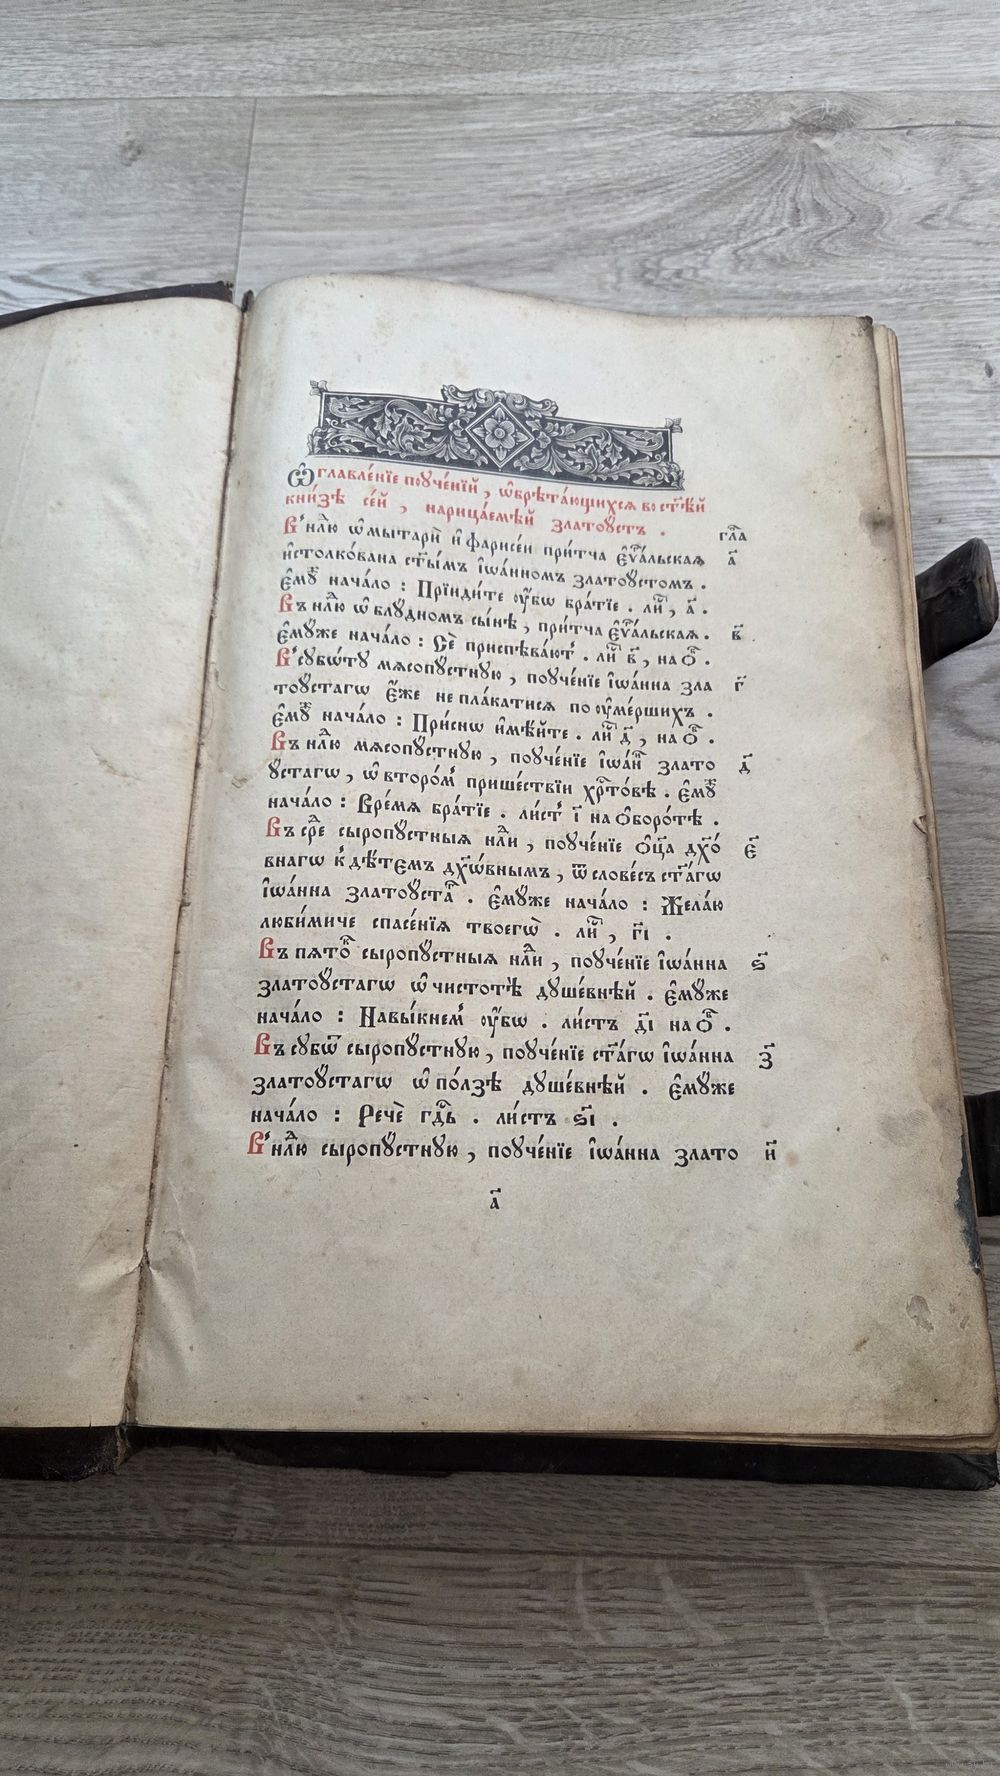 Ѡ҆главле́нїе поꙋче́нїй , ѡ҆брѣта́ющихсѧ во ст҃ѣ́й
кни́зѣ се́й , нарица́емѣй златоꙋ́стъ .
гла҃
В̾ нл҃ю ѡ҆ мытарѝ и҆ фарисе́и при́тча є҆ѵⷢ҇альскаѧ а҃
и҆столко́вана ст҃ы́мъ і҆ѡа́нномъ златоꙋ́стомъ .
є҆мꙋⷤ нача́ло : Прїиди́те ᲂу҆́бѡ бра́тїе . лиⷭ҇ , а҃ .
Въ нл҃ю ѡ҆ блꙋ́дномъ сы́нѣ , при́тча є҆ѵⷢ҇альскаѧ . в҃
є҆мꙋ́же нача́ло : Сѐ приспѣва́ютⸯ . лиⷭ҇ в҃ , на ѻ҆ⷠ .
В̾ сꙋбѡ́тꙋ мѧсопꙋ́стнꙋю , поꙋче́нїе і҆ѡа́нна зла г҃
тоꙋстагѡ є҆́же не пла́катисѧ по ᲂу҆ме́ршихъ .
є҆мꙋⷤ нача́ло : При́снѡ и҆мѣ́йте . лиⷭ҇ д҃ , на ѻ҆ⷠ .
Въ нл҃ю мѧсопꙋ́стнꙋю , поꙋче́нїе і҆ѡа́нⷩ злато д҃
ꙋстагѡ , ѡ҆ второ́мⸯ прише́ствїи хрⷭ҇то́вѣ . є҆мꙋⷤ
нача́ло : Вре́мѧ бра́тїе . ли́стⸯ і҃ на ѻ҆боро́тѣ .
Въ срⷣе сыропꙋ́стныѧ нл҃и , поꙋче́нїе ѻ҆ц҃а дх҃о́ є҃
внагѡ к̾ дѣ́темъ дх҃ѡ́внымъ , ѿ слове́съ ст҃а́гѡ
і҆ѡа́нна златоꙋ́стаⷢ . є҆мꙋ́же нача́ло : Жела́ю
люби́миче спасе́нїѧ твоегѡ̀ . лиⷭ҇ , г҃і .
Въ пѧтоⷦ сыропꙋ́стныѧ нл҃и , поꙋче́нїе і҆ѡа́нна ѕ҃
златоꙋ́стагѡ ѡ҆ чистотѣ̀ дꙋше́внѣй . є҆мꙋ́же
нача́ло : Навы́кнемⸯ ᲂу҆́бѡ . ли́стъ д҃і на ѻ҆ⷠ .
Въ сꙋбѡⷮ сыропꙋ́стнꙋю , поꙋче́нїе ст҃а́гѡ і҆ѡа́нна з҃
златоꙋ́стагѡ ѡ҆ по́лзѣ дꙋше́внѣй . є҆мꙋ́же
нача́ло : Речѐ гдⷭ҇ь . ли́стъ ѕ҃і .
В̾ нл҃ю сыропꙋ́стнꙋю , поꙋче́нїе і҆ѡа́нна злато и҃
а҃